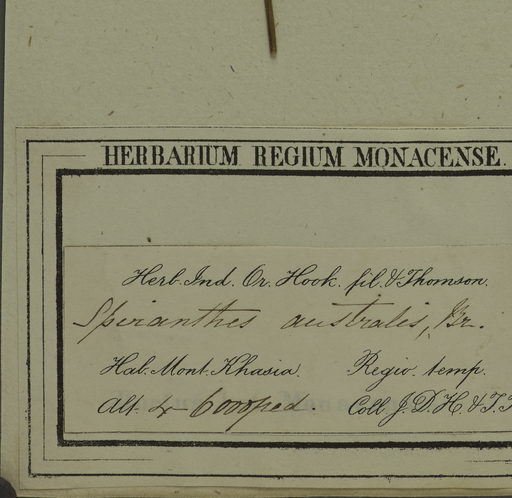 HERBARIUM REGIUM MONACENSE.
Herb. Ind. Or. Hook. fil. & Thomson.
Spiranthes australis, Br.
Hab. Mont. Khasia. Regio. temp.
Alt. 6000 ped. Coll. J. D. H. & T. T